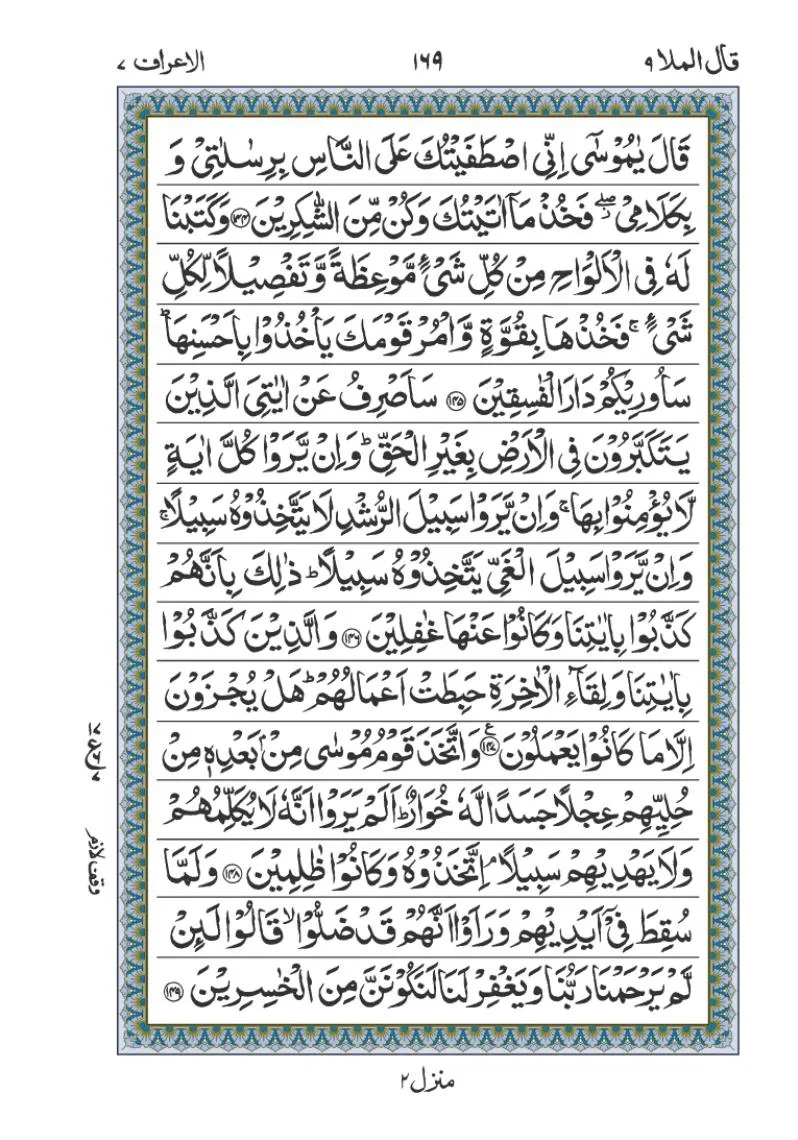 قال الملا ٩
١٦٩
الاعراف ٧
قَالَ يٰمُوْسٰۤى اِنِّى اصْطَفَيْتُكَ عَلَى النَّاسِ بِرِسٰلٰتِىْ وَ
بِكَلَامِىْ ۖ فَخُذْ مَاۤ اٰتَيْتُكَ وَكُنْ مِّنَ الشّٰكِرِيْنَ ﴿۱۴۴﴾ وَكَتَبْنَا
لَهٗ فِى الْاَلْوَاحِ مِنْ كُلِّ شَىْءٍ مَّوْعِظَةً وَّتَفْصِيْلًا لِّكُلِّ
شَىْءٍ ۚ فَخُذْهَا بِقُوَّةٍ وَّاْمُرْ قَوْمَكَ يَاْخُذُوْا بِاَحْسَنِهَا ؕ
سَاُورِيْكُمْ دَارَ الْفٰسِقِيْنَ ﴿۱۴۵﴾ سَاَصْرِفُ عَنْ اٰيٰتِىَ الَّذِيْنَ
يَتَكَبَّرُوْنَ فِى الْاَرْضِ بِغَيْرِ الْحَقِّ ؕ وَاِنْ يَّرَوْا كُلَّ اٰيَةٍ
لَّا يُؤْمِنُوْا بِهَا ۚ وَاِنْ يَّرَوْا سَبِيْلَ الرُّشْدِ لَا يَتَّخِذُوْهُ سَبِيْلًا ۚ
وَاِنْ يَّرَوْا سَبِيْلَ الْغَىِّ يَتَّخِذُوْهُ سَبِيْلًا ؕ ذٰلِكَ بِاَنَّهُمْ
كَذَّبُوْا بِاٰيٰتِنَا وَكَانُوْا عَنْهَا غٰفِلِيْنَ ﴿۱۴۶﴾ وَالَّذِيْنَ كَذَّبُوْا
بِاٰيٰتِنَا وَلِقَآءِ الْاٰخِرَةِ حَبِطَتْ اَعْمَالُهُمْ ؕ هَلْ يُجْزَوْنَ
اِلَّا مَا كَانُوْا يَعْمَلُوْنَ ﴿۱۴۷﴾ ع وَاتَّخَذَ قَوْمُ مُوْسٰى مِنْۢ بَعْدِهٖ مِنْ
حُلِيِّهِمْ عِجْلًا جَسَدًا لَّهٗ خُوَارٌ ؕ اَلَمْ يَرَوْا اَنَّهٗ لَا يُكَلِّمُهُمْ
وَلَا يَهْدِيْهِمْ سَبِيْلًا ۘ اِتَّخَذُوْهُ وَكَانُوْا ظٰلِمِيْنَ ﴿۱۴۸﴾ وَلَمَّا
سُقِطَ فِىْۤ اَيْدِيْهِمْ وَرَاَوْا اَنَّهُمْ قَدْ ضَلُّوْا ۙ قَالُوْا لَئِنْ
لَّمْ يَرْحَمْنَا رَبُّنَا وَيَغْفِرْ لَنَا لَنَكُوْنَنَّ مِنَ الْخٰسِرِيْنَ ﴿۱۴۹﴾
وقف لازم
منزل ٢